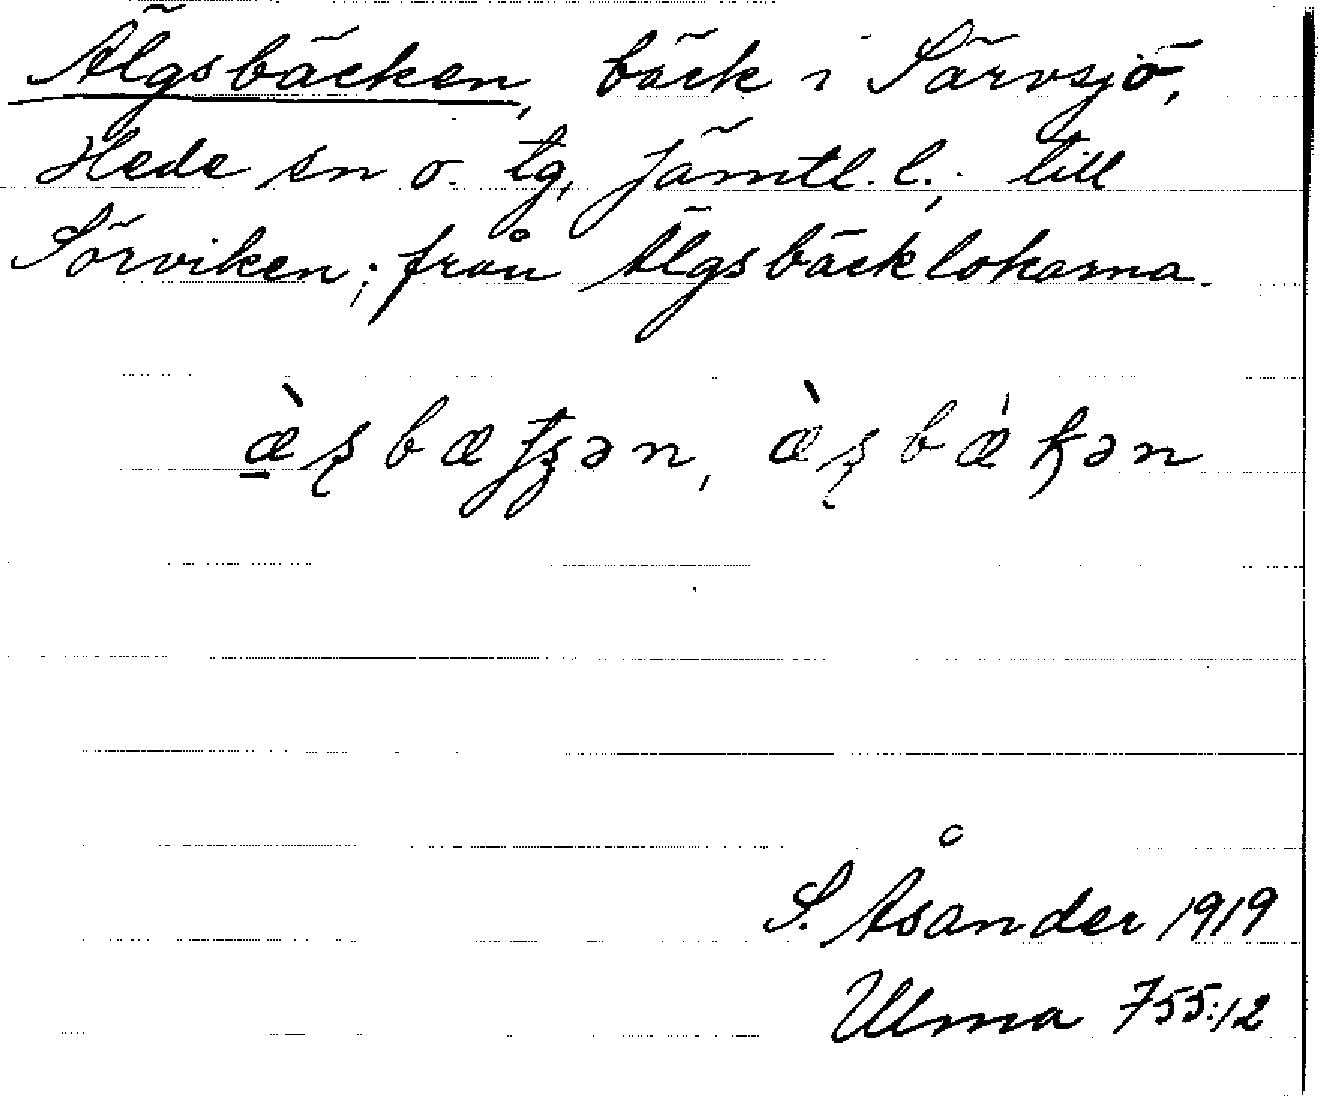 Älgsbäcken, bäck i Särvsjö,
Hede sn o. tg, Jämtl. l.; till
Sörviken; från Älgsbäcklokarna.
S. Åsander 1919
Ulma 755:12